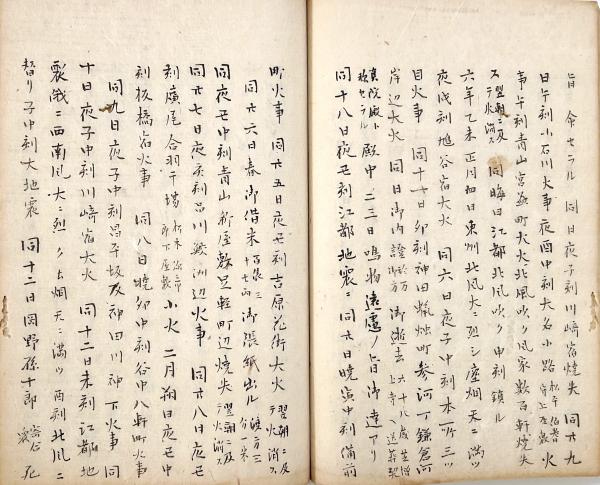 旨 命セラル 同日夜子刻川崎宿焼失 同廿九
日午刻小石川火事夜酉中刻大名小路 火
事午刻青山宮益町大火北風吹ク風家数百軒焼失
ス翌朝ニ及テ火消ス 同晦日江都北風吹ク申刻鎮ル
六年乙未正月初日東州北風大ニ烈シ塵烟天ニ満ツ
夜戌刻 谷宿大火 同六日夜子中刻本所三ツ
目火事 同十七日卯刻神田蝋燭町参河丁鎌倉河
岸辺大火 同日御内證 御逝去
殿中二三日鳴物遠慮ノ旨御達アリ
同十八日夜丑刻江都地震ニ 同六日暁寅中刻備前
町火事 同廿五日夜丑刻吉原花街大火 翌朝ニ及テ火消ス
同廿六日春御借米 御張紙出ル
同夜丑中刻青山 屋 足軽町辺焼失 翌朝ニ及テ火消ス
同廿七日夜亥刻品川 洲辺火事 同廿八日夜亥
刻廣尾合羽干場 小火 二月朔日夜丑中
刻板橋宿火事 同八日暁卯中刻谷中八軒町火事
同九日夜子中刻昌平坂及神田川神下火事 同
十日夜子中刻川崎宿大火 同十二日未刻江都地
震俄ニ西南風大ニ烈ク土烟天ニ満ツ酉刻北風ニ
替リ子中刻大地震 同十二日岡野孫十郎 死